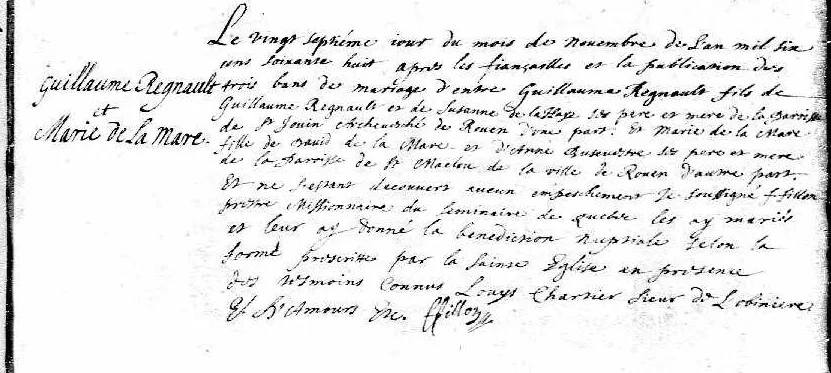 Guillaume Regnault
et
Marie de la Mare.
Le vingt septiéme iour du mois de Novembre de l'an mil six
cens soixante huit après les fiançailles et la publication des
trois bans de mariage d'entre Guillaume Regnault fils de
Guillaume Regnault et de Susanne de la Haye ses pere et mere de la Parrisse
de St Jouin Archevesché de Rouen d'une part: Et Marie de la Mare
fille de David de la Mare et d'Anne Busevestre ses pere et mere
de la Parrisse de St Maclou de la ville de Rouen d'autre part.
Et ne s'estant decouvert aucun empeschement Je soussigné f fillon
prestre Missionnaire du seminaire de Quebec les ay mariés
et leur ay donné la benediction nuptiale selon la
forme prescritte par la Sainte Eglise en presence
des tesmoins connus Louys Chartier Sieur de Lobiniere
St Amours &c. ffillon